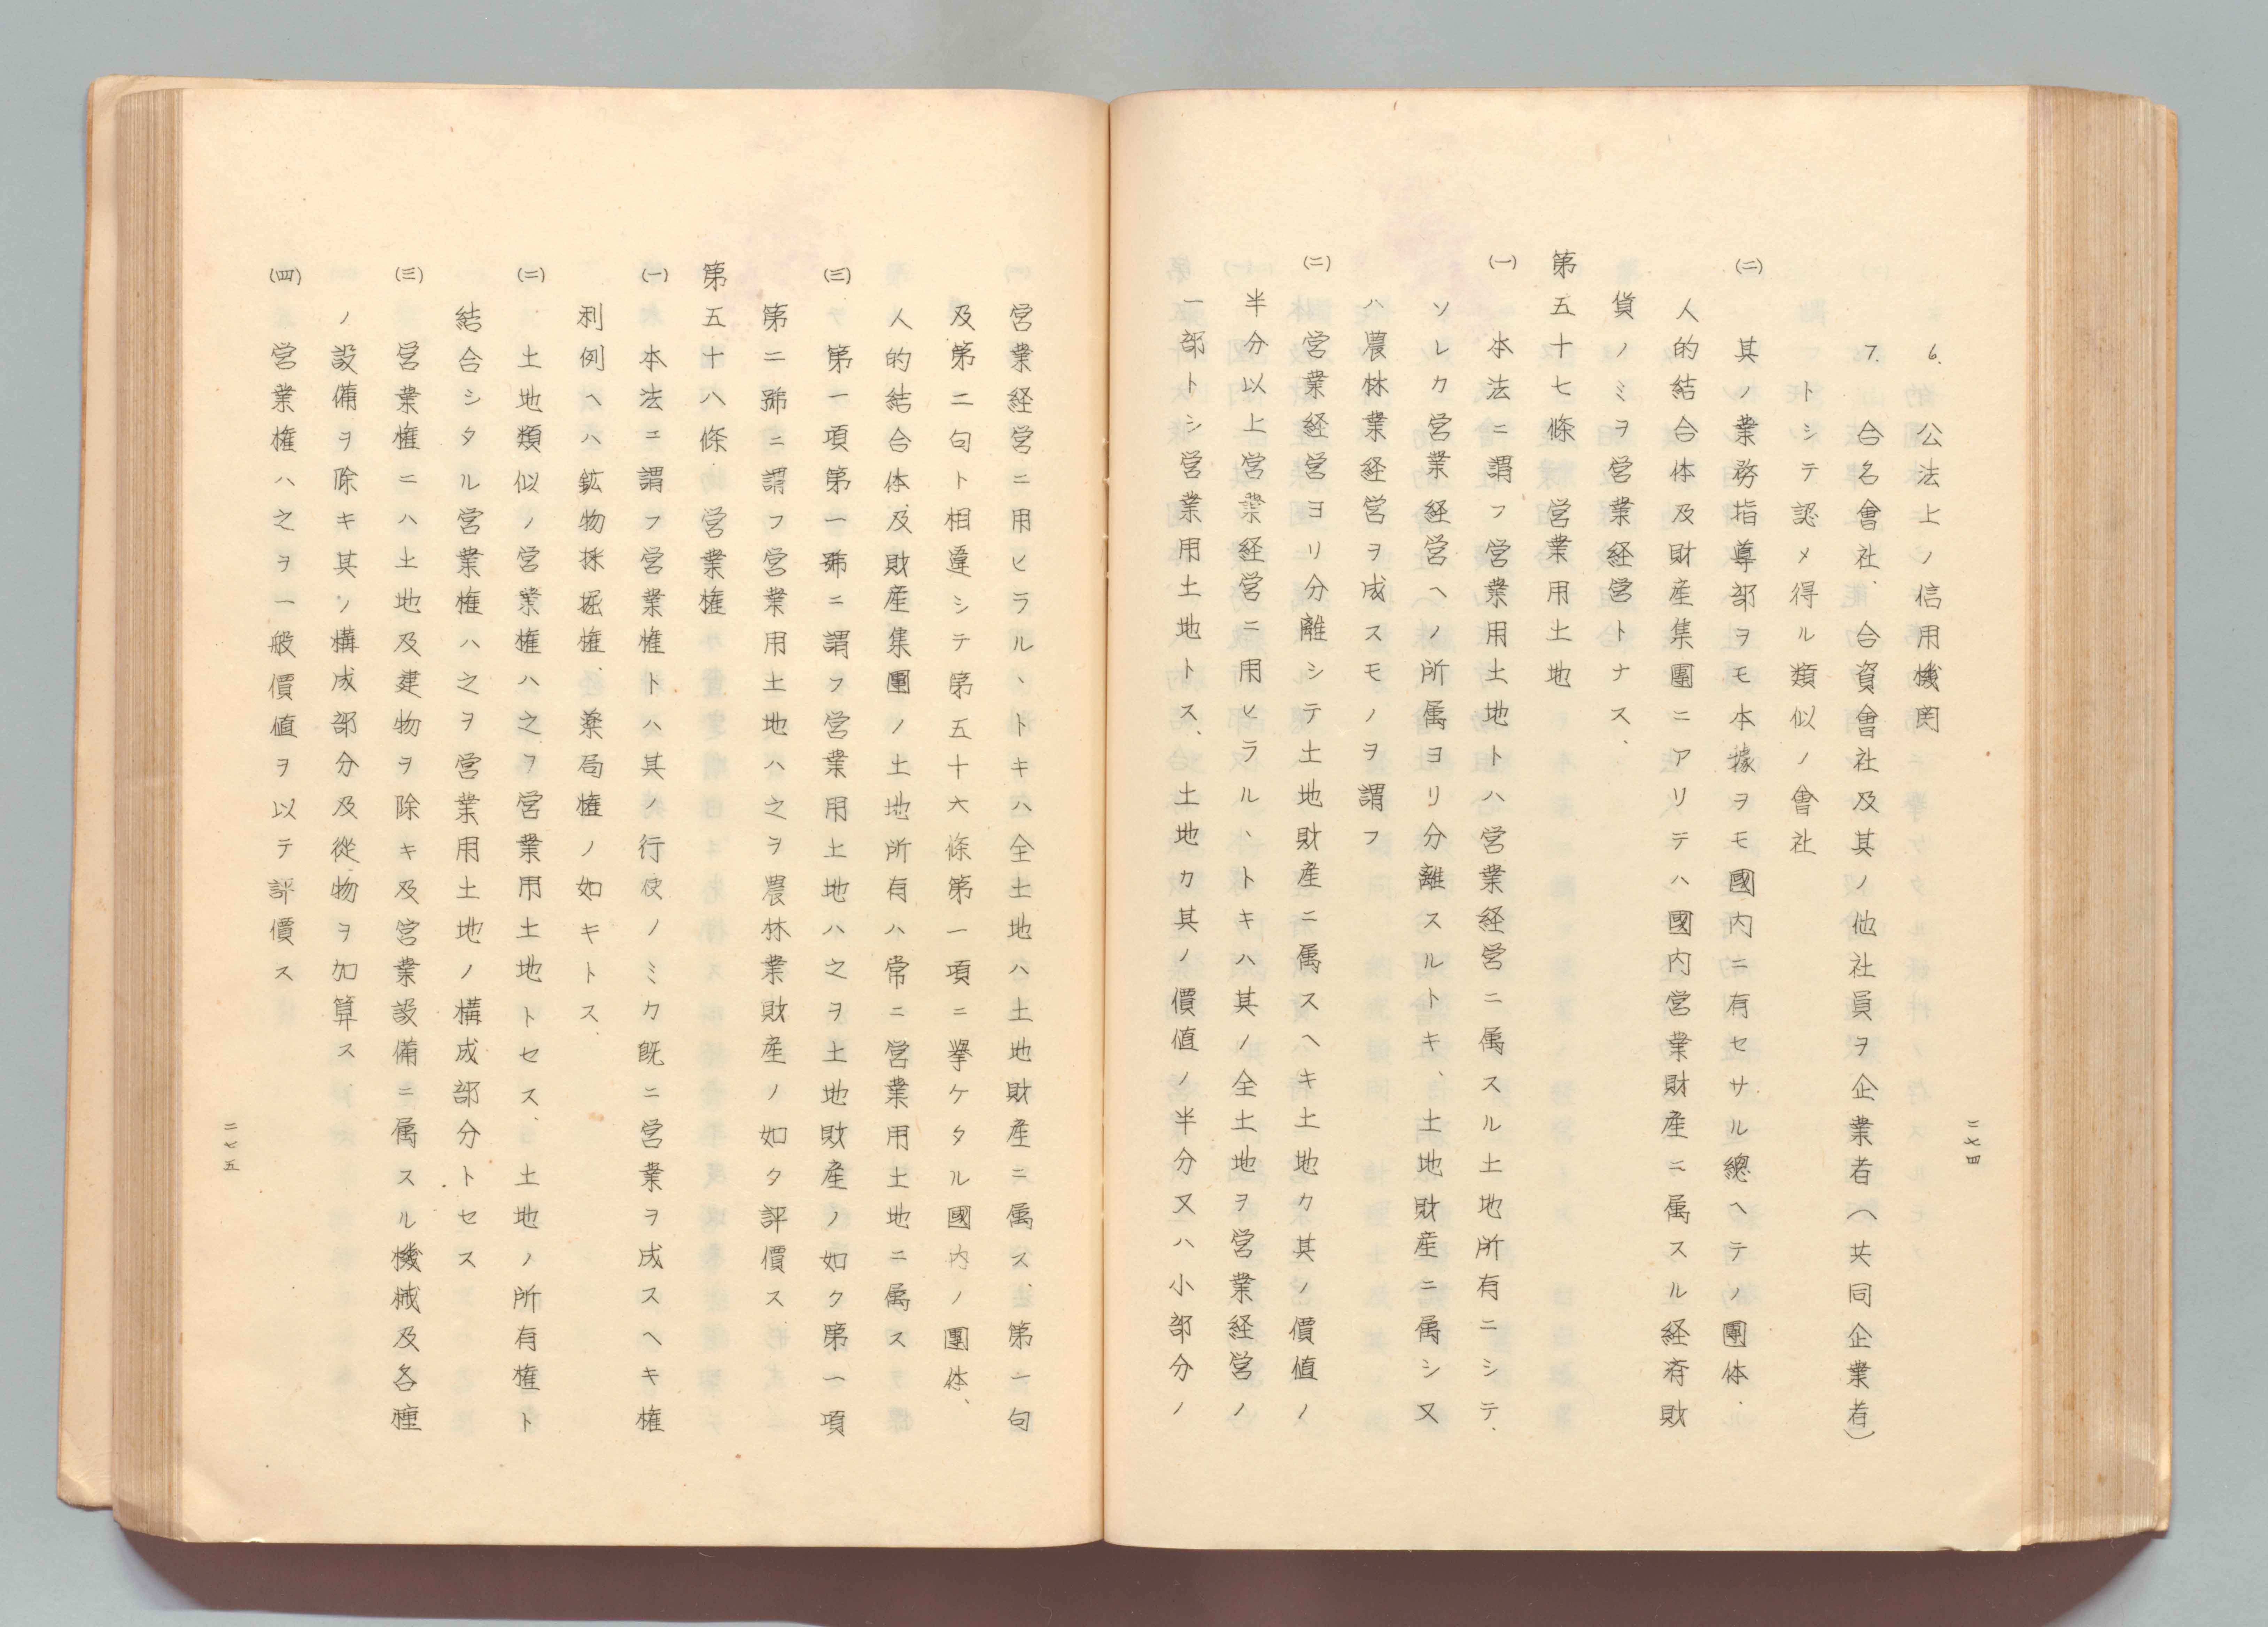 6. 公法上ノ信用機関
7. 合名會社、合資會社及其ノ他社員ヲ企業者(共同企業者)
トシテ認メ得ル類似ノ會社
㈡ 其ノ業務指導部ヲモ本據ヲモ國内ニ有セサル總ヘテノ團体、
人的結合体及財産集團ニアリテハ國内営業財産ニ属スル経済財
貨ノミヲ営業経営トナス、
第五十七條 営業用土地
㈠ 本法ニ謂フ営業用土地トハ営業経営ニ属スル土地所有ニシテ、
ソレカ営業経営ヘノ所属ヨリ分離スルトキ、土地財産ニ属シ又
ハ農林業経営ヲ成スモノヲ謂フ
㈡ 営業経営ヨリ分離シテ土地財産ニ属スヘキ土地カ其ノ價値ノ
半分以上営業経営ニ用ヒラル、トキハ其ノ全土地ヲ営業経営ノ
一部トシ営業用土地トス、土地カ其ノ價値ノ半分又ハ小部分ノ
二七四
営業経営ニ用ヒラル、トキハ全土地ハ土地財産ニ属ス、第一句
及第二句ト相違シテ第五十六條第一項ニ擧ケタル國内ノ團体、
人的結合体及財産集團ノ土地所有ハ常ニ営業用土地ニ属ス
㈢ 第一項第一號ニ謂フ営業用土地ハ之ヲ土地財産ノ如ク第一項
第二號ニ謂フ営業用土地ハ之ヲ農林業財産ノ如ク評價ス
第五十八條 営業権
㈠ 本法ニ謂フ営業権トハ其ノ行使ノミカ既ニ営業ヲ成スヘキ権
利例ヘハ鉱物採掘権、薬局権ノ如キトス、
㈡ 土地類似ノ営業権ハ之ヲ営業用土地トセス、土地ノ所有権ト
結合シタル営業権ハ之ヲ営業用土地ノ構成部分トセス
㈢ 営業権ニハ土地及建物ヲ除キ及営業設備ニ属スル機械及各種
ノ設備ヲ除キ其ノ構成部分及從物ヲ加算ス
㈣ 営業権ハ之ヲ一般價値ヲ以テ評價ス
二七五